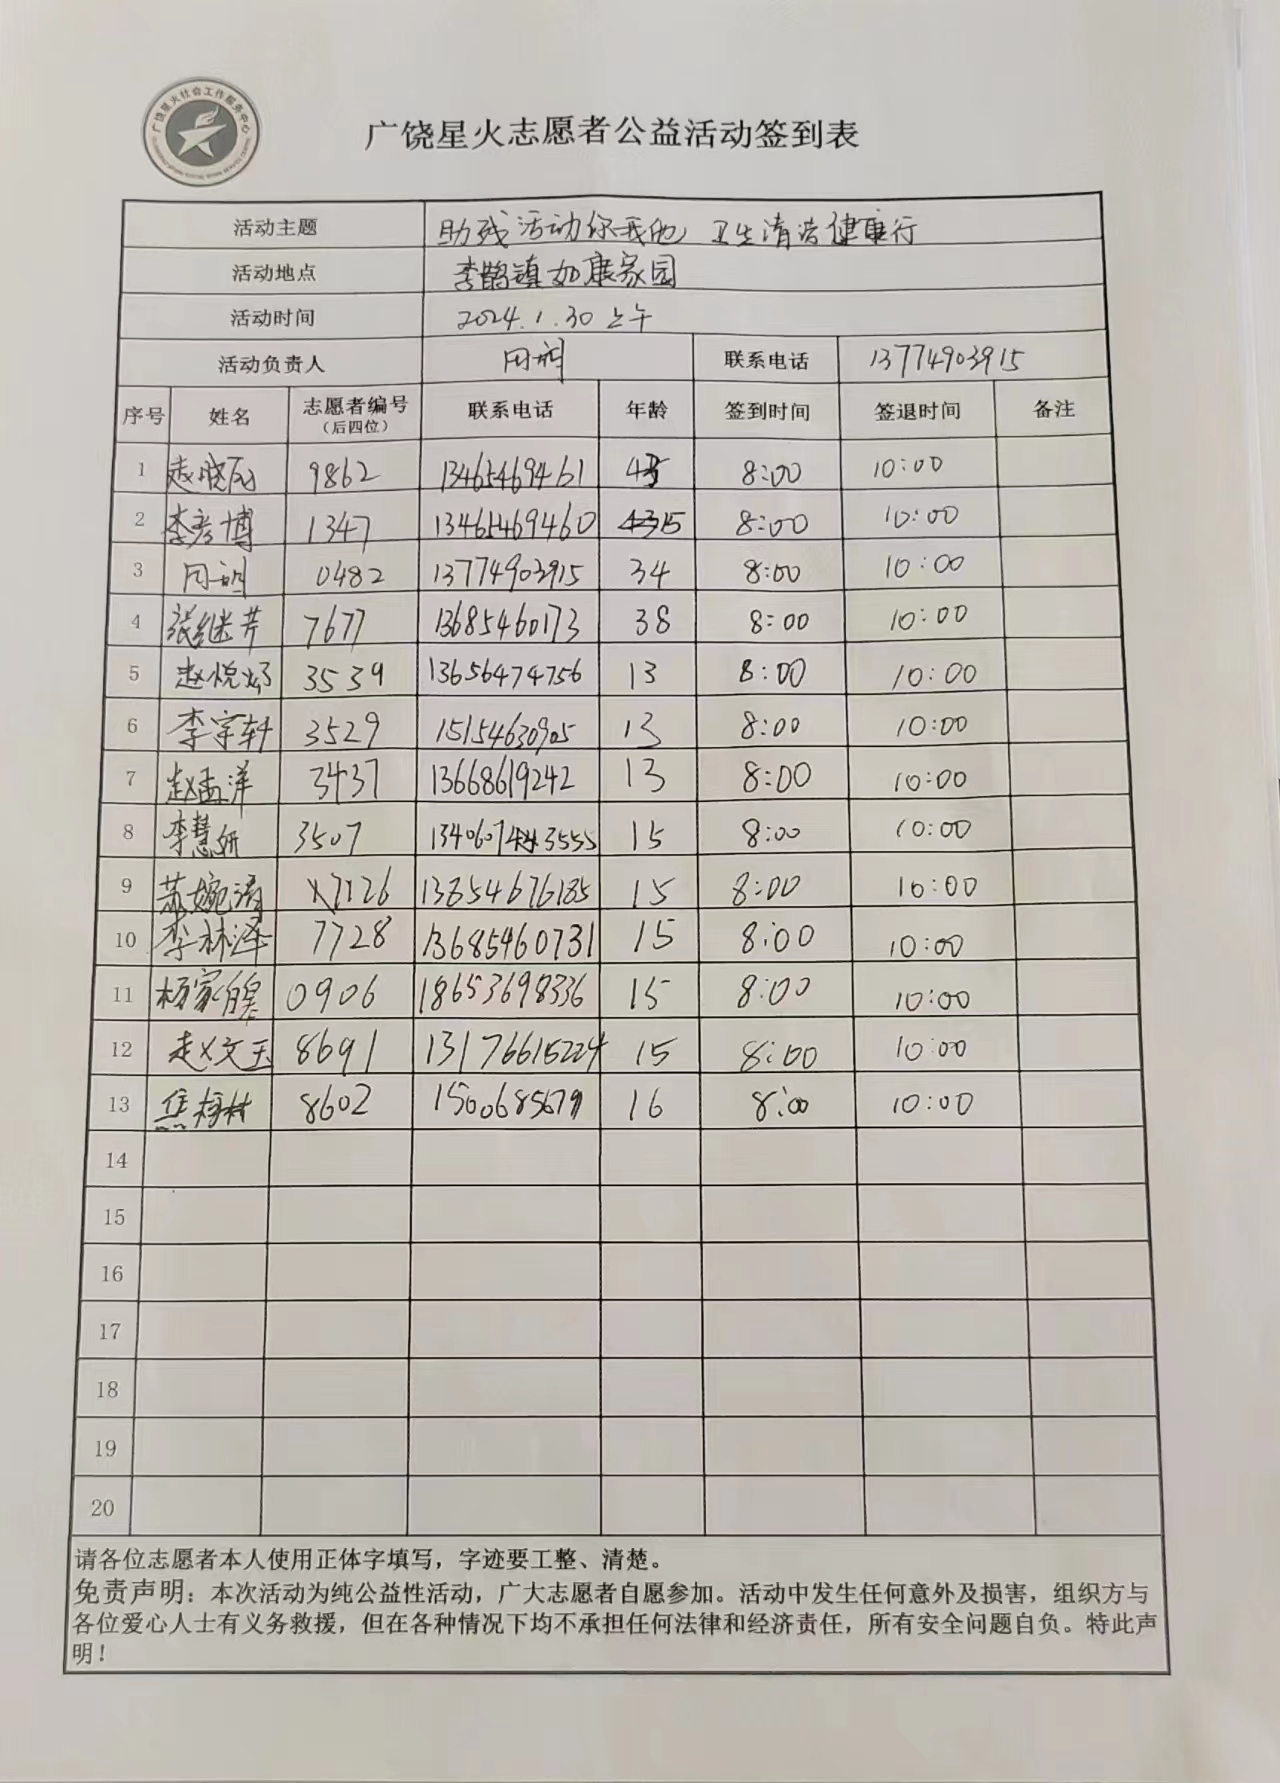 广饶星火社会工作服务中心
广饶星火志愿者公益活动签到表
活动主题 助残活动你我他 卫生清洁健康行
活动地点 李鹊镇如康家园
活动时间 2024.1.30 上午
活动负责人 联系电话 13774903915
序号 姓名 志愿者编号（后四位） 联系电话 年龄 签到时间 签退时间 备注
1 赵晓 9862 13465469461 8:00 10:00
2 李彦博 1347 13465469460 15 8:00 10:00
3 周 0482 13774903915 34 8:00 10:00
4 张继芹 7677 13685460173 38 8:00 10:00
5 赵悦 3539 13656474756 13 8:00 10:00
6 李宇轩 3529 15154630905 13 8:00 10:00
7 赵孟洋 3437 13668619242 13 8:00 10:00
8 李慧妍 3507 15 8:00 10:00
9 苏婉清 7126 13854676185 15 8:00 10:00
10 李林泽 7728 13685460731 15 8:00 10:00
11 杨家 0906 18653698336 15 8:00 10:00
12 赵文玉 8691 13176615224 15 8:00 10:00
13 焦 8602 15006856719 16 8:00 10:00
14
15
16
17
18
19
20
请各位志愿者本人使用正体字填写，字迹要工整、清楚。
免责声明：本次活动为纯公益性活动，广大志愿者自愿参加。活动中发生任何意外及损害，组织方与
各位爱心人士有义务救援，但在各种情况下均不承担任何法律和经济责任，所有安全问题自负。特此声
明！